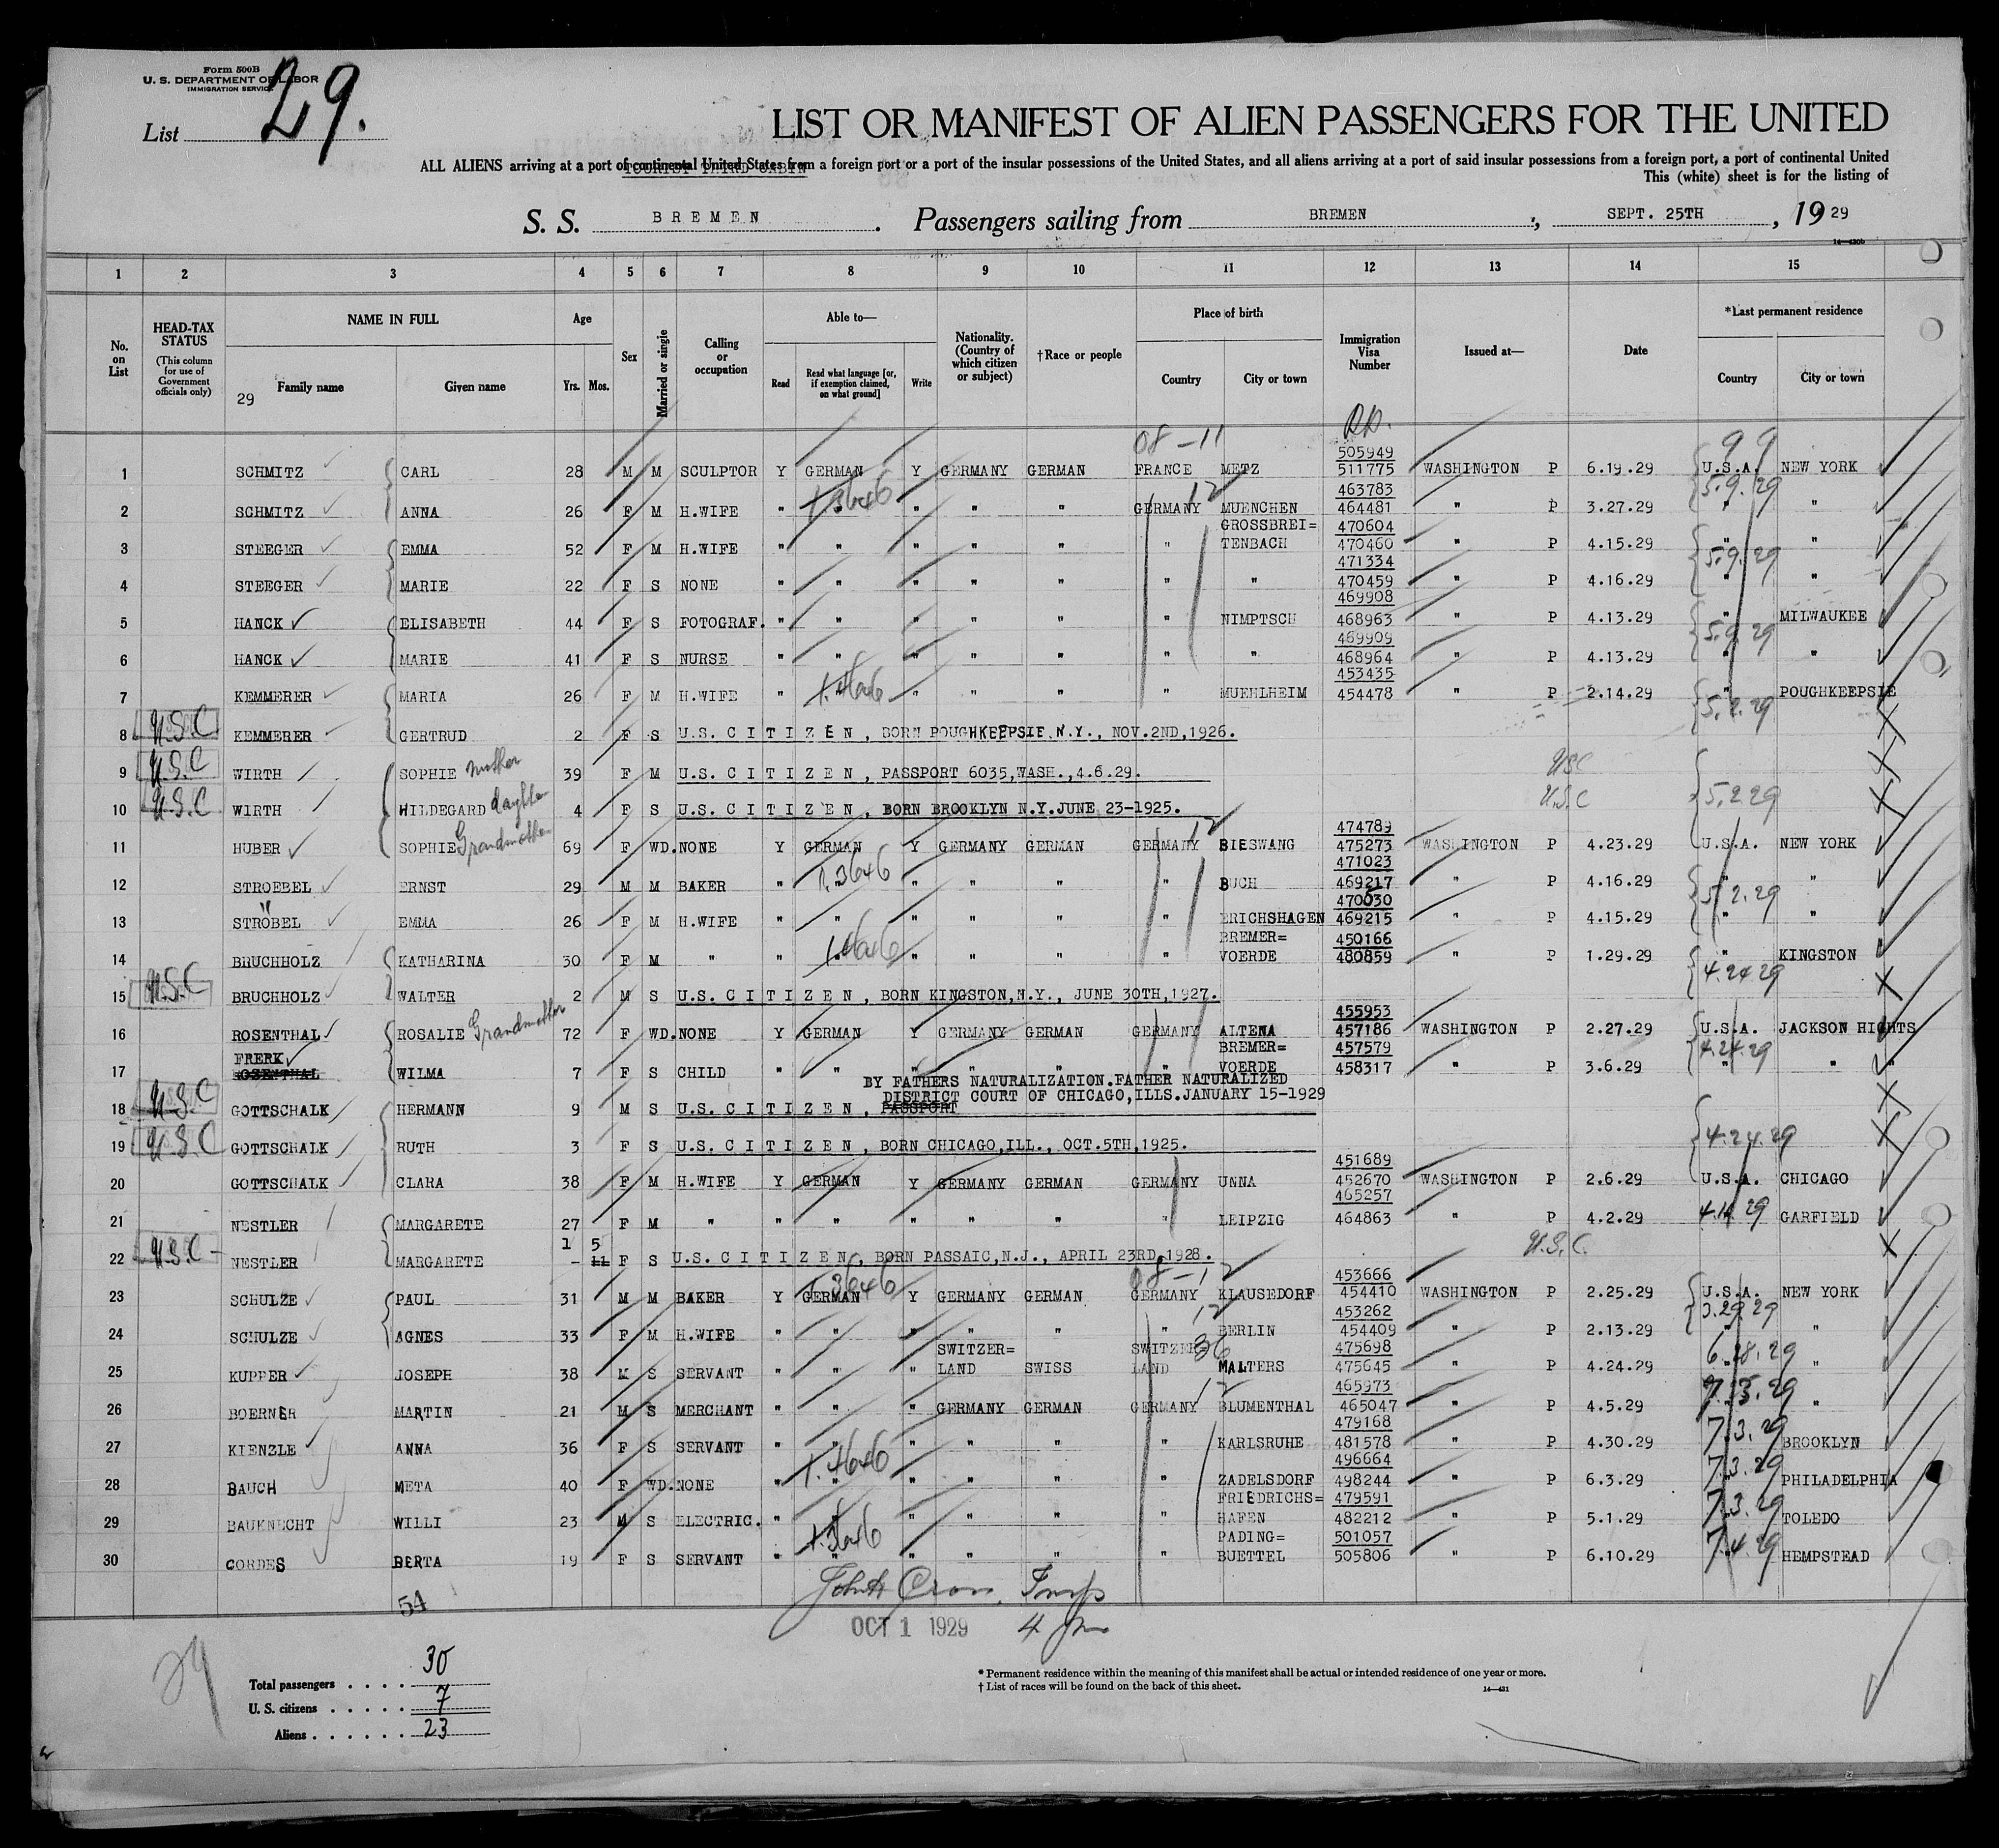 Form 500B
U. S. DEPARTMENT OF LABOR
IMMIGRATION SERVICE
List 29.
LIST OR MANIFEST OF ALIEN PASSENGERS FOR THE UNITED
ALL ALIENS arriving at a port of continental United States from a foreign port or a port of the insular possessions of the United States, and all aliens arriving at a port of said insular possessions from a foreign port, a port of continental United
TOURIST THIRD CABIN
This (white) sheet is for the listing of
S. S. BREMEN. Passengers sailing from BREMEN, SEPT. 25TH, 1929
14—430b
1 2 3 4 5 6 7 8 9 10 11 12 13 14 15
No. on List
HEAD-TAX STATUS (This column for use of Government officials only)
NAME IN FULL
29 Family name Given name
Age Yrs. Mos.
Sex
Married or single
Calling or occupation
Able to— Read Read what language [or, if exemption claimed, on what ground] Write
Nationality. (Country of which citizen or subject)
†Race or people
Place of birth Country City or town
Immigration Visa Number
Issued at—
Date
*Last permanent residence Country City or town
08-11 99
505949
1 SCHMITZ CARL 28 M M SCULPTOR Y GERMAN Y GERMANY GERMAN FRANCE METZ 511775 WASHINGTON P 6.19.29 U.S.A. NEW YORK
1.3646 12 463783 5.9.29
2 SCHMITZ ANNA 26 F M H.WIFE " " " " " GERMANY MUENCHEN 464481 " P 3.27.29 " "
GROSSBREI= 470604
3 STEEGER EMMA 52 F M H.WIFE " " " " " " TENBACH 470460 " P 4.15.29 " "
471334 5.9.29
4 STEEGER MARIE 22 F S NONE " " " " " " " 470459 " P 4.16.29 " "
469908
5 HANCK ELISABETH 44 F S FOTOGRAF. " " " " " " NIMPTSCH 468963 " P 4.13.29 " MILWAUKEE
469909 5.9.29
6 HANCK MARIE 41 F S NURSE " " " " " " " 468964 " P 4.13.29 " "
1.4646 453435
7 KEMMERER MARIA 26 F M H.WIFE " " " " " MUEHLHEIM 454478 " P 2.14.29 " POUGHKEEPSIE
5.2.29
U.S.C 8 KEMMERER GERTRUD 2 F S U.S. CITIZEN, BORN POUGHKEEPSIE N.Y., NOV.2ND,1926.
U.S.C 9 WIRTH SOPHIE mother 39 F M U.S. CITIZEN, PASSPORT 6035,WASH.,4.6.29. USC
U.S.C 10 WIRTH HILDEGARD daughter 4 F S U.S. CITIZEN, BORN BROOKLYN N.Y.JUNE 23-1925. U.S.C 5.2.29
12 474789
11 HUBER SOPHIE Grandmother 69 F WD. NONE Y GERMAN Y GERMANY GERMAN GERMANY BIESWANG 475273 WASHINGTON P 4.23.29 U.S.A. NEW YORK
1.3646 471023
12 STROEBEL ERNST 29 M M BAKER " " " " " BUCH 469217 " P 4.16.29 " "
470030 5.2.29
13 STRÖBEL EMMA 26 F M H.WIFE " " " " " " ERICHSHAGEN 469215 " P 4.15.29 " "
BREMER= 450166
14 BRUCHHOLZ KATHARINA 30 F M " " 1.4646 " " " " VOERDE 480859 " P 1.29.29 " KINGSTON
4.24.29
U.S.C 15 BRUCHHOLZ WALTER 2 M S U.S. CITIZEN, BORN KINGSTON,N.Y., JUNE 30TH,1927.
455953
16 ROSENTHAL ROSALIE Grandmother 72 F WD. NONE Y GERMAN Y GERMANY GERMAN GERMANY ALTENA 457186 WASHINGTON P 2.27.29 U.S.A. JACKSON HIGHTS
FRERK BREMER= 457579 4.24.29
17 ROSENTHAL WILMA 7 F S CHILD " " " " " " VOERDE 458317 " P 3.6.29 " "
BY FATHERS NATURALIZATION.FATHER NATURALIZED
DISTRICT COURT OF CHICAGO,ILLS.JANUARY 15-1929
U.S.C 18 GOTTSCHALK HERMANN 9 M S U.S. CITIZEN, PASSPORT
U.S.C 19 GOTTSCHALK RUTH 3 F S U.S. CITIZEN, BORN CHICAGO,ILL., OCT.5TH,1925. 4.24.29
451689
20 GOTTSCHALK CLARA 38 F M H.WIFE Y GERMAN Y GERMANY GERMAN GERMANY UNNA 452670 WASHINGTON P 2.6.29 U.S.A. CHICAGO
465257
21 NESTLER MARGARETE 27 F M " " " " " " " LEIPZIG 464863 " P 4.2.29 29 GARFIELD
1 5 U.S.C.
U.S.C - 22 NESTLER MARGARETE - 11 F S U.S. CITIZEN, BORN PASSAIC,N.J., APRIL 23RD,1928.
1.3646 08-12 453666
23 SCHULZE PAUL 31 M M BAKER Y GERMAN Y GERMANY GERMAN GERMANY KLAUSEDORF 454410 WASHINGTON P 2.25.29 U.S.A. NEW YORK
12 453262 3.29.29
24 SCHULZE AGNES 33 F M H.WIFE " " " " " " BERLIN 454409 " P 2.13.29 " "
SWITZER= SWITZER= 36 475698 6.28.29
25 KUPPER JOSEPH 38 M S SERVANT " " " LAND SWISS LAND MALTERS 475645 " P 4.24.29 " "
12 465973
26 BOERNER MARTIN 21 M S MERCHANT " " " GERMANY GERMAN GERMANY BLUMENTHAL 465047 " P 4.5.29 " "
479168 7.3.29
27 KIENZLE ANNA 36 F S SERVANT " " " " " " KARLSRUHE 481578 " P 4.30.29 BROOKLYN
1.4646 496664 7.3.29
28 BAUCH META 40 F WD. NONE " " " " " " ZADELSDORF 498244 " P 6.3.29 " PHILADELPHIA
FRIEDRICHS= 479591 7.3.29
29 BAUKNECHT WILLI 23 M S ELECTRIC. " " " " " " HAFEN 482212 " P 5.1.29 " TOLEDO
1.3646 PADING= 501057 7.4.29
30 CORDES BERTA 19 F S SERVANT " " " " " " BUETTEL 505806 " P 6.10.29 HEMPSTEAD
54
OCT 1 1929
29
Total passengers . . . . 30
U. S. citizens . . . . . 7
Aliens . . . . . . 23
* Permanent residence within the meaning of this manifest shall be actual or intended residence of one year or more.
† List of races will be found on the back of this sheet.
14—431